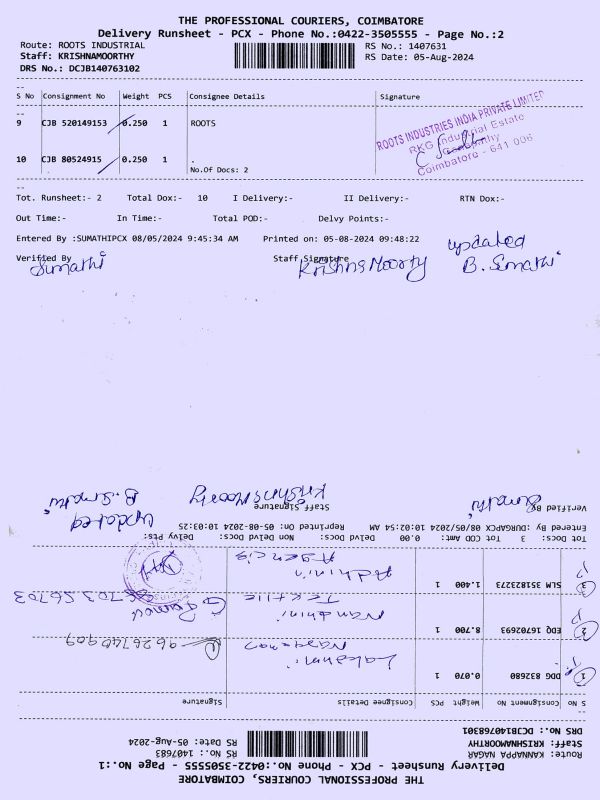 THE PROFESSIONAL COURIERS, COIMBATORE
Delivery Runsheet - PCX - Phone No.:0422-3505555 - Page No.:2
Route: ROOTS INDUSTRIAL
Staff: KRISHNAMOORTHY
DRS No.: DCJB140763102
RS No.: 1407631
RS Date: 05-Aug-2024
S No Consignment No Weight PCS Consignee Details Signature
9 CJB 520149153 0.250 1 ROOTS
10 CJB 80524915 0.250 1 .
No.Of Docs: 2
ROOTS INDUSTRIES INDIA PRIVATE LIMITED
RKG Industrial Estate
Coimbatore - 641 006
Tot. Runsheet:- 2 Total Dox:- 10 I Delivery:- II Delivery:- RTN Dox:-
Out Time:- In Time:- Total POD:- Delvy Points:-
Entered By :SUMATHIPCX 08/05/2024 9:45:34 AM Printed on: 05-08-2024 09:48:22
Verified By Staff Signature
Sumathi KrishnaMoorty updated
B. Sumathi
THE PROFESSIONAL COURIERS, COIMBATORE
Delivery Runsheet - PCX - Phone No.:0422-3505555 - Page No.:1
Route: KANNAPPA NAGAR
Staff: KRISHNAMOORTHY
DRS No.: DCJB140768301
RS No.: 1407683
RS Date: 05-Aug-2024
S No Consignment No Weight PCS Consignee Details Signature
1 DDG 832680 0.070 1 Lakshmi
9626740909
2 EDQ 16702693 8.700 1 Nandhini
Textile
3 SLM 351823273 1.400 1 Adhinin
Agencis
Tot Docs: 3 Tot COD Amt: 0.00 Delvd Docs: Non Delvd Docs: Delvy Pts:
Entered By :DURGAPCX 08/05/2024 10:02:54 AM Reprinted On: 05-08-2024 10:03:25
Verified By Staff Signature
Sumathi KrishnaMoorty updated
B. Sumathi